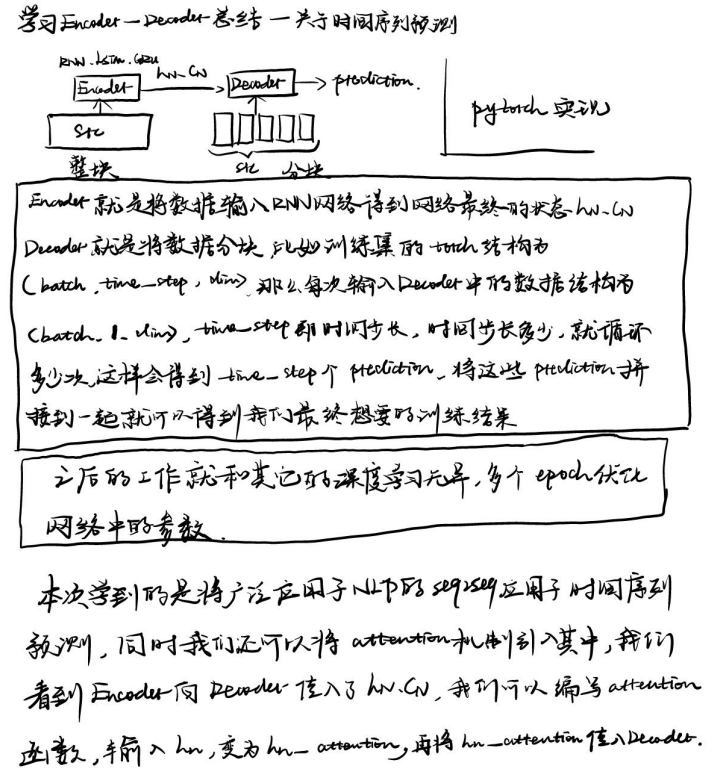 学习Encoder-Decoder总结—关于时间序列预测
RNN.Lstm.GRU
Encoder
hn.Cn
Decoder
prediction.
pytorch 实现
src
整块
src 分块
Encoder就是将数据输入RNN网络得到网络最终的状态hn.Cn
Decoder就是将数据分块,比如训练集的torch结构为
(batch,time_step,dim),那么每次输入Decoder中的数据结构为
(batch,1,dim),time_step即时间步长,时间步长多少,就循环
多少次,这样会得到time_step个prediction,将这些prediction拼
接到一起就可以得到我们最终想要的训练结果
之后的工作就和其它的深度学习无异,多个epoch优化
网络中的参数.
本次学到的是将广泛应用于NLP的seq2seq应用于时间序列
预测,同时我们还可以将attention机制引入其中,我们
看到Encoder向Decoder传入了hn.Cn,我们可以编写attention
函数,输入hn,变为hn_attention,再将hn_attention传入Decoder.